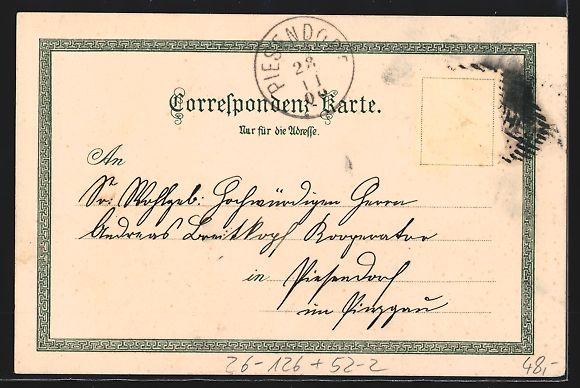 PIESENDORF
28
11
00
Correspondenz Karte.
Nur für die Adresse.
An
Sr. Wohlgeb: Hochwürdigen Herrn
Andreas Breitkopf Kooperator
in Piesendorf
im Pinzgau
26-126+52-2
48,-